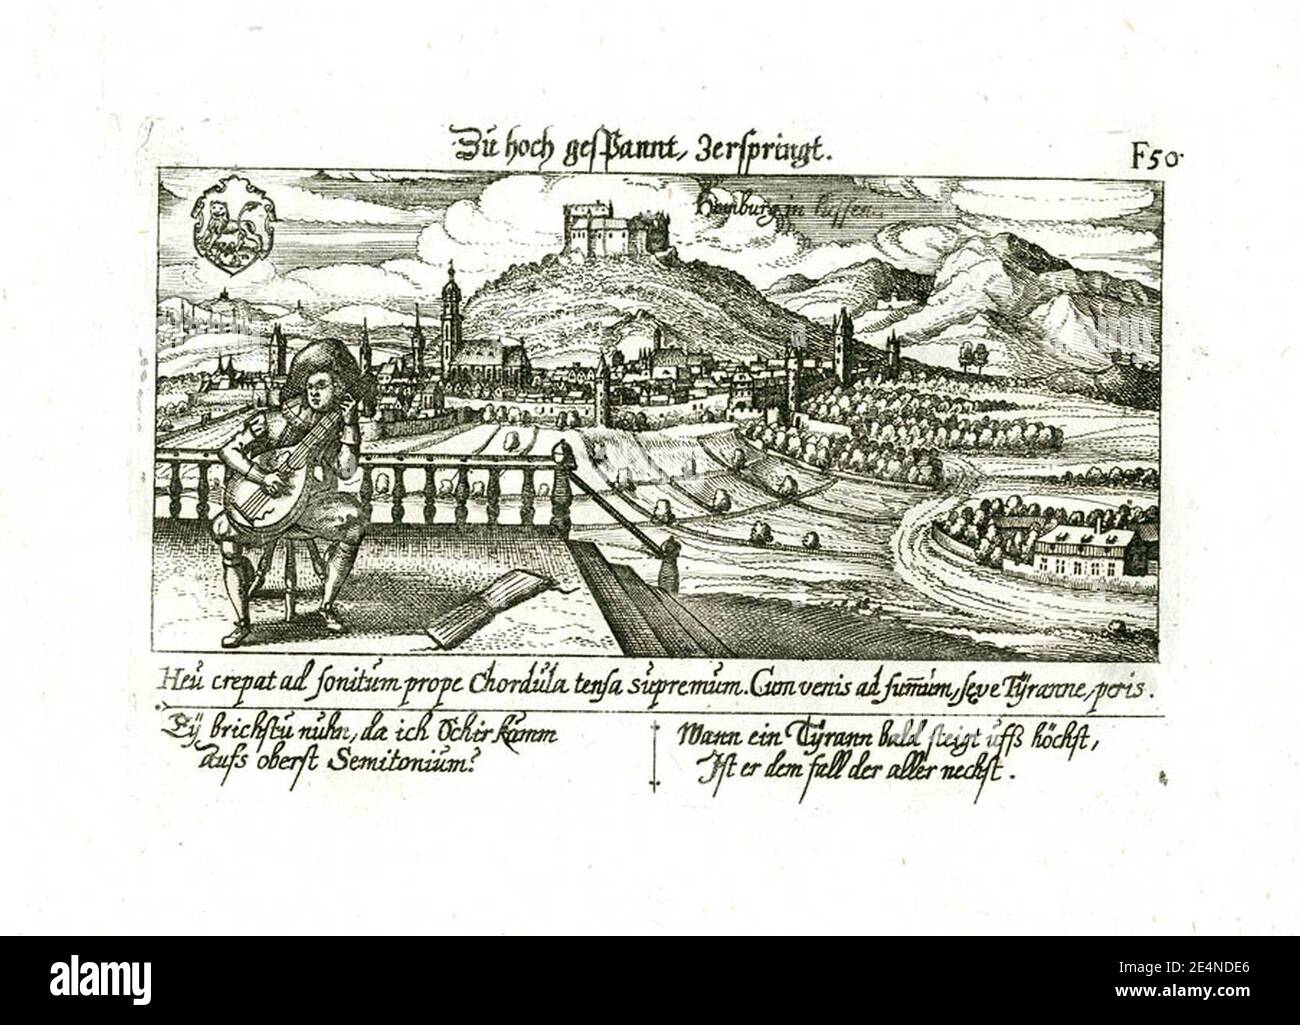 Zu hoch gespannt, zerspringt.
F50.
Homburg in hessen.
Heu crepat ad sonitum prope Chordula tensa supremum. Cum venis ad sum̄um, sęve Tÿranne, peris.
Eÿ brichstu nuhn, da ich schir kamm
aufs oberst Semitonium?
Wann ein Tÿrann bald steigt uffs höchst,
Ist er dem fall der aller nechst.
alamy
Image ID: 2E4NDE6
www.alamy.com